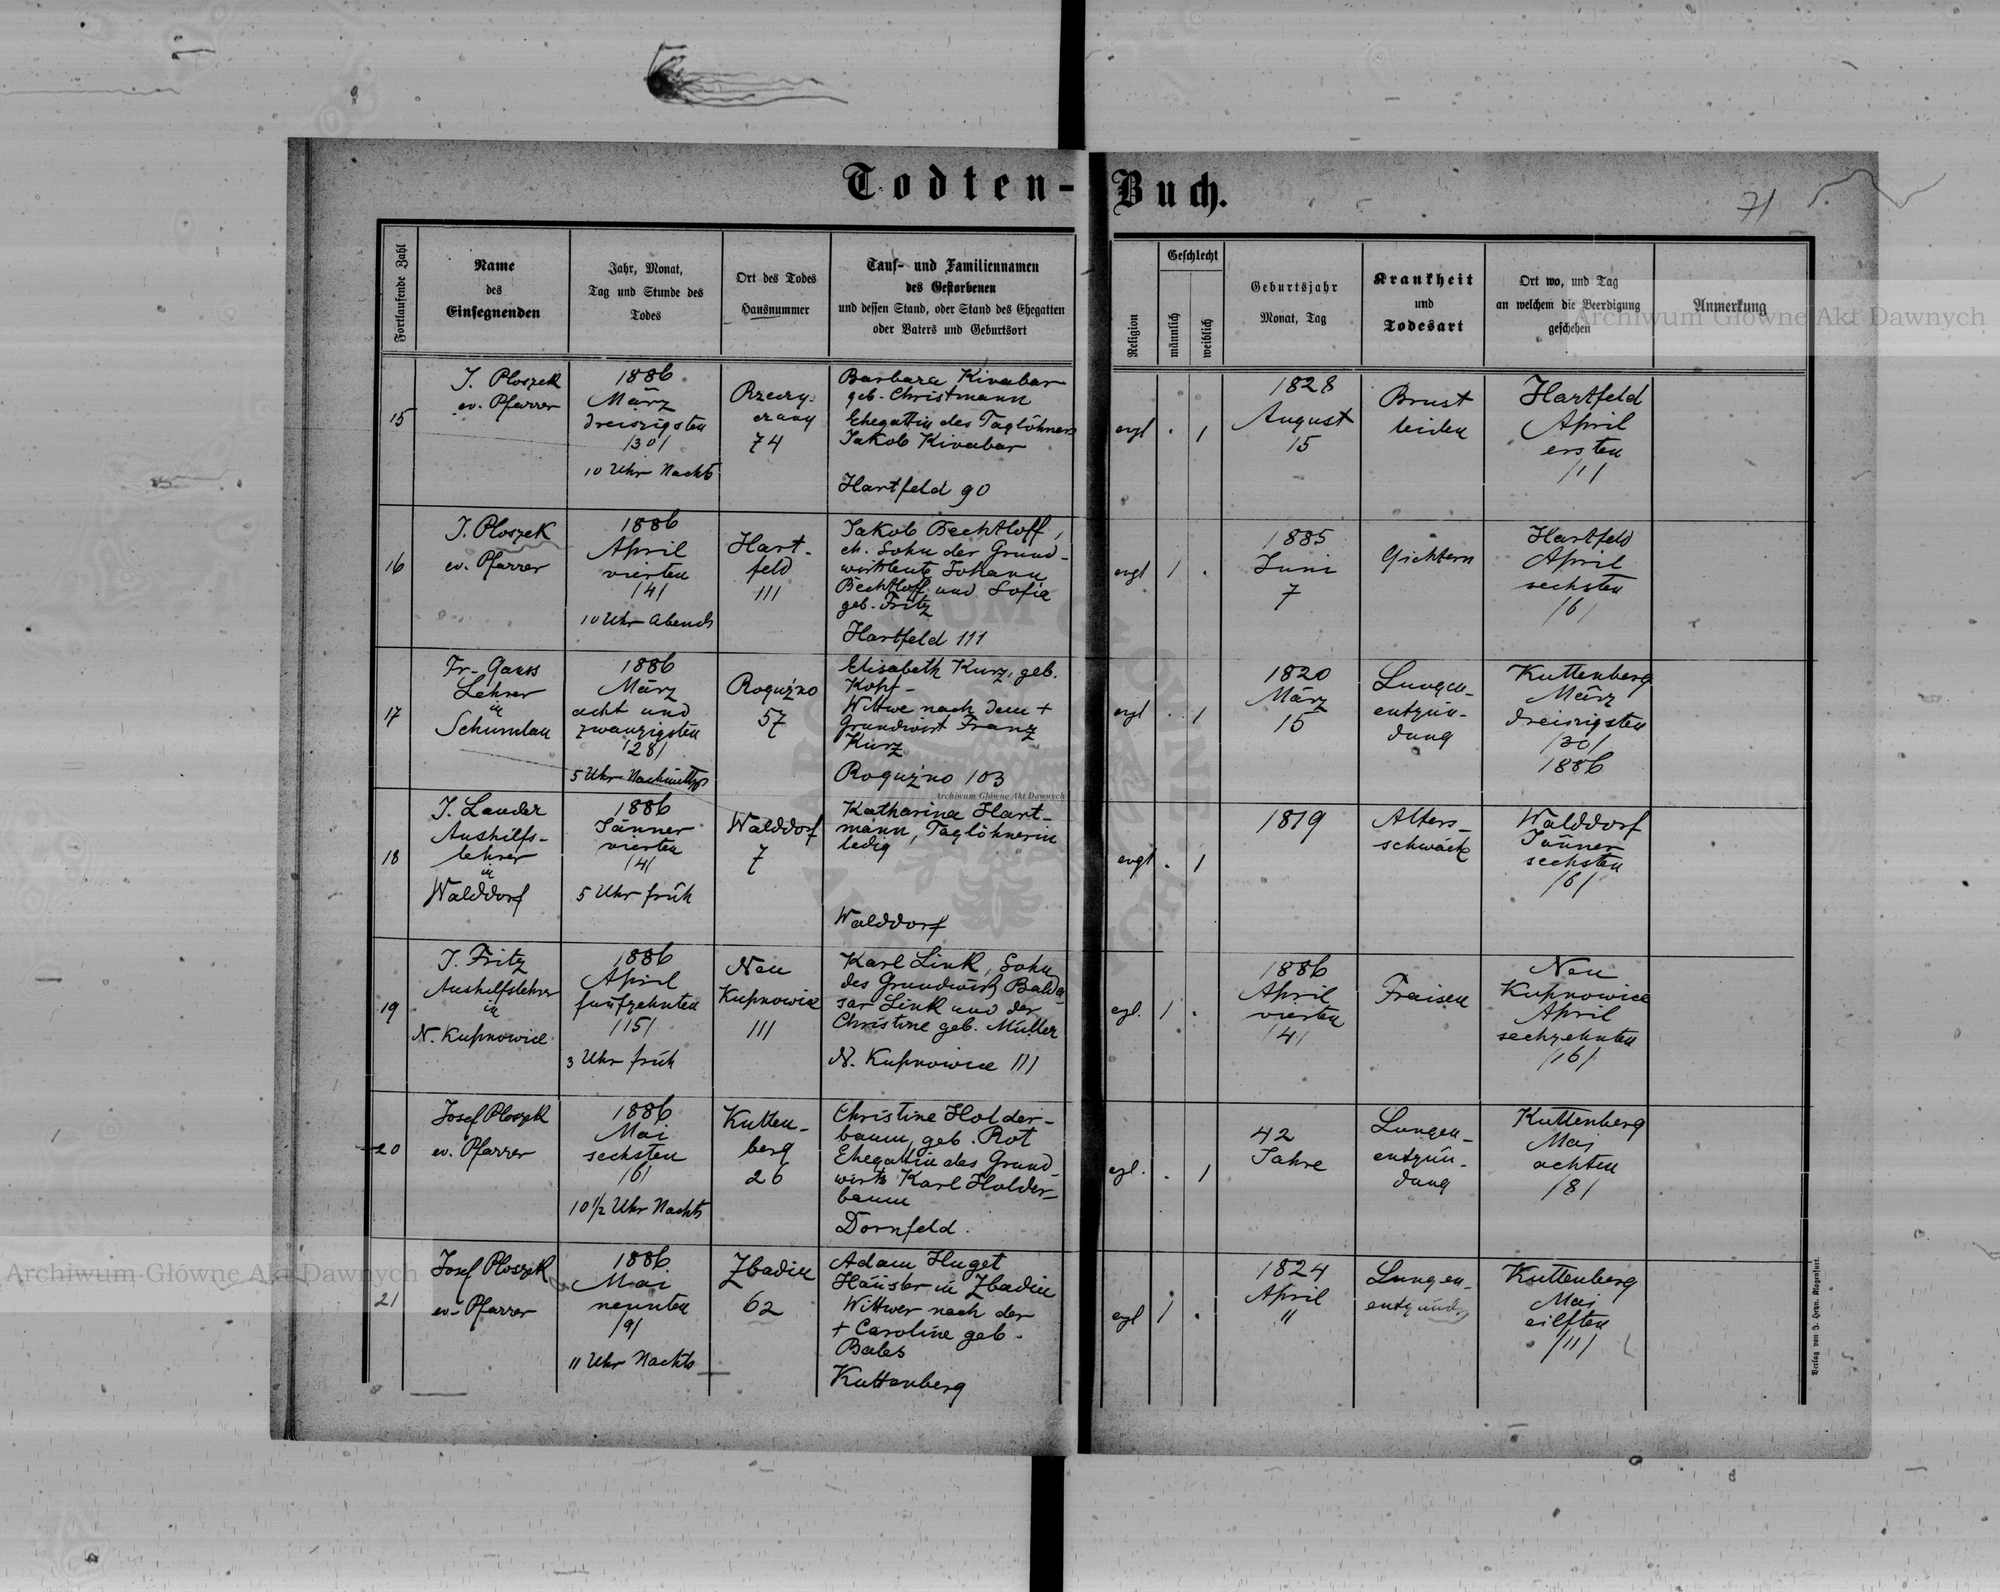 Todten-Buch.
71
Fortlaufende Zahl
Name
des
Einsegnenden
Jahr, Monat,
Tag und Stunde des
Todes
Ort des Todes
Hausnummer
Tauf- und Familiennamen
des Gestorbenen
und dessen Stand, oder Stand des Ehegatten
oder Vaters und Geburtsort
Religion
Geschlecht
männlich
weiblich
Geburtsjahr
Monat, Tag
Krankheit
und
Todesart
Ort wo, und Tag
an welchem die Beerdigung
geschehen
Anmerkung
15
J. Ploszek
ev. Pfarrer
1886
März
dreiszigsten
/30/
10 Uhr Nachts
Rzeczy-
czany
74
Barbara Kinabar
geb. Christmann
Ehegattin des Taglöhners
Jakob Kinabar
Hartfeld 90
evgl
.
1
1828
August
15
Brust
leiden
Hartfeld
April
ersten
/1/
16
J. Ploszek
ev. Pfarrer
1886
April
vierten
/4/
10 Uhr Abends
Hart-
feld
111
Jakob Bechtloff,
eh. Sohn der Grund-
wirtsleute Johann
Bechtloff und Sofie
geb. Fritz
Hartfeld 111
evgl
1
.
1885
Juni
7
Gichtern
Hartfeld
April
sechsten
/6/
17
Fr. Gauss
Lehrer
in
Schumlau
1886
März
acht und
zwanzigsten
/28/
5 Uhr Nachmittgs
Roguźno
57
Elisabeth Kurz, geb.
Kopf-
Wittwe nach dem +
Grundwirt Franz
Kurz
Roguźno 103
evgl
.
1
1820
März
15
Lungen-
entzün-
dung
Kuttenberg
März
dreiszigsten
/30/
1886
18
J. Lander
Aushilfs-
lehrer
in
Walddorf
1886
Jänner
vierten
/4/
5 Uhr früh
Walddorf
7
Katharina Hart-
mann, Taglöhnerin
ledig
Walddorf
evgl
.
1
1819
Alters-
schwäche
Walddorf
Jänner
sechsten
/6/
19
J. Fritz
Aushilfslehrer
in
N. Kupnowice
1886
April
fünfzehnten
/15/
3 Uhr früh
Neu
Kupnowice
111
Karl Link, Sohn
des Grundwirts Balda-
sar Link und der
Christine geb. Müller
N. Kupnowice 111
egl.
1
.
1886
April
vierten
/4/
Fraisen
Neu
Kupnowice
April
sechzehnten
/16/
20
Josef Ploszek
ev. Pfarrer
1886
Mai
sechsten
/6/
10 1/2 Uhr Nachts
Kutten-
berg
26
Christine Holder-
baum, geb. Rot
Ehegattin des Grund-
wirts Karl Holder-
baum
Dornfeld.
egl.
.
1
42
Jahre
Lungen-
entzün-
dung
Kuttenberg
Mai
achten
/8/
21
Josef Ploszek
ev. Pfarrer
1886
Mai
neunten
/9/
11 Uhr Nachts
Zbadin
62
Adam Huget
Häusler in Zbadin
Wittwer nach der
+ Caroline geb.
Bales
Kuttenberg
egl
1
.
1824
April
11
Lungen-
entzündg
Kuttenberg
Mai
eilften
/11/
Verlag von J. Heyn, Klagenfurt.
Archiwum Główne Akt Dawnych
Archiwum Główne Akt Dawnych
Archiwum Główne Akt Dawnych